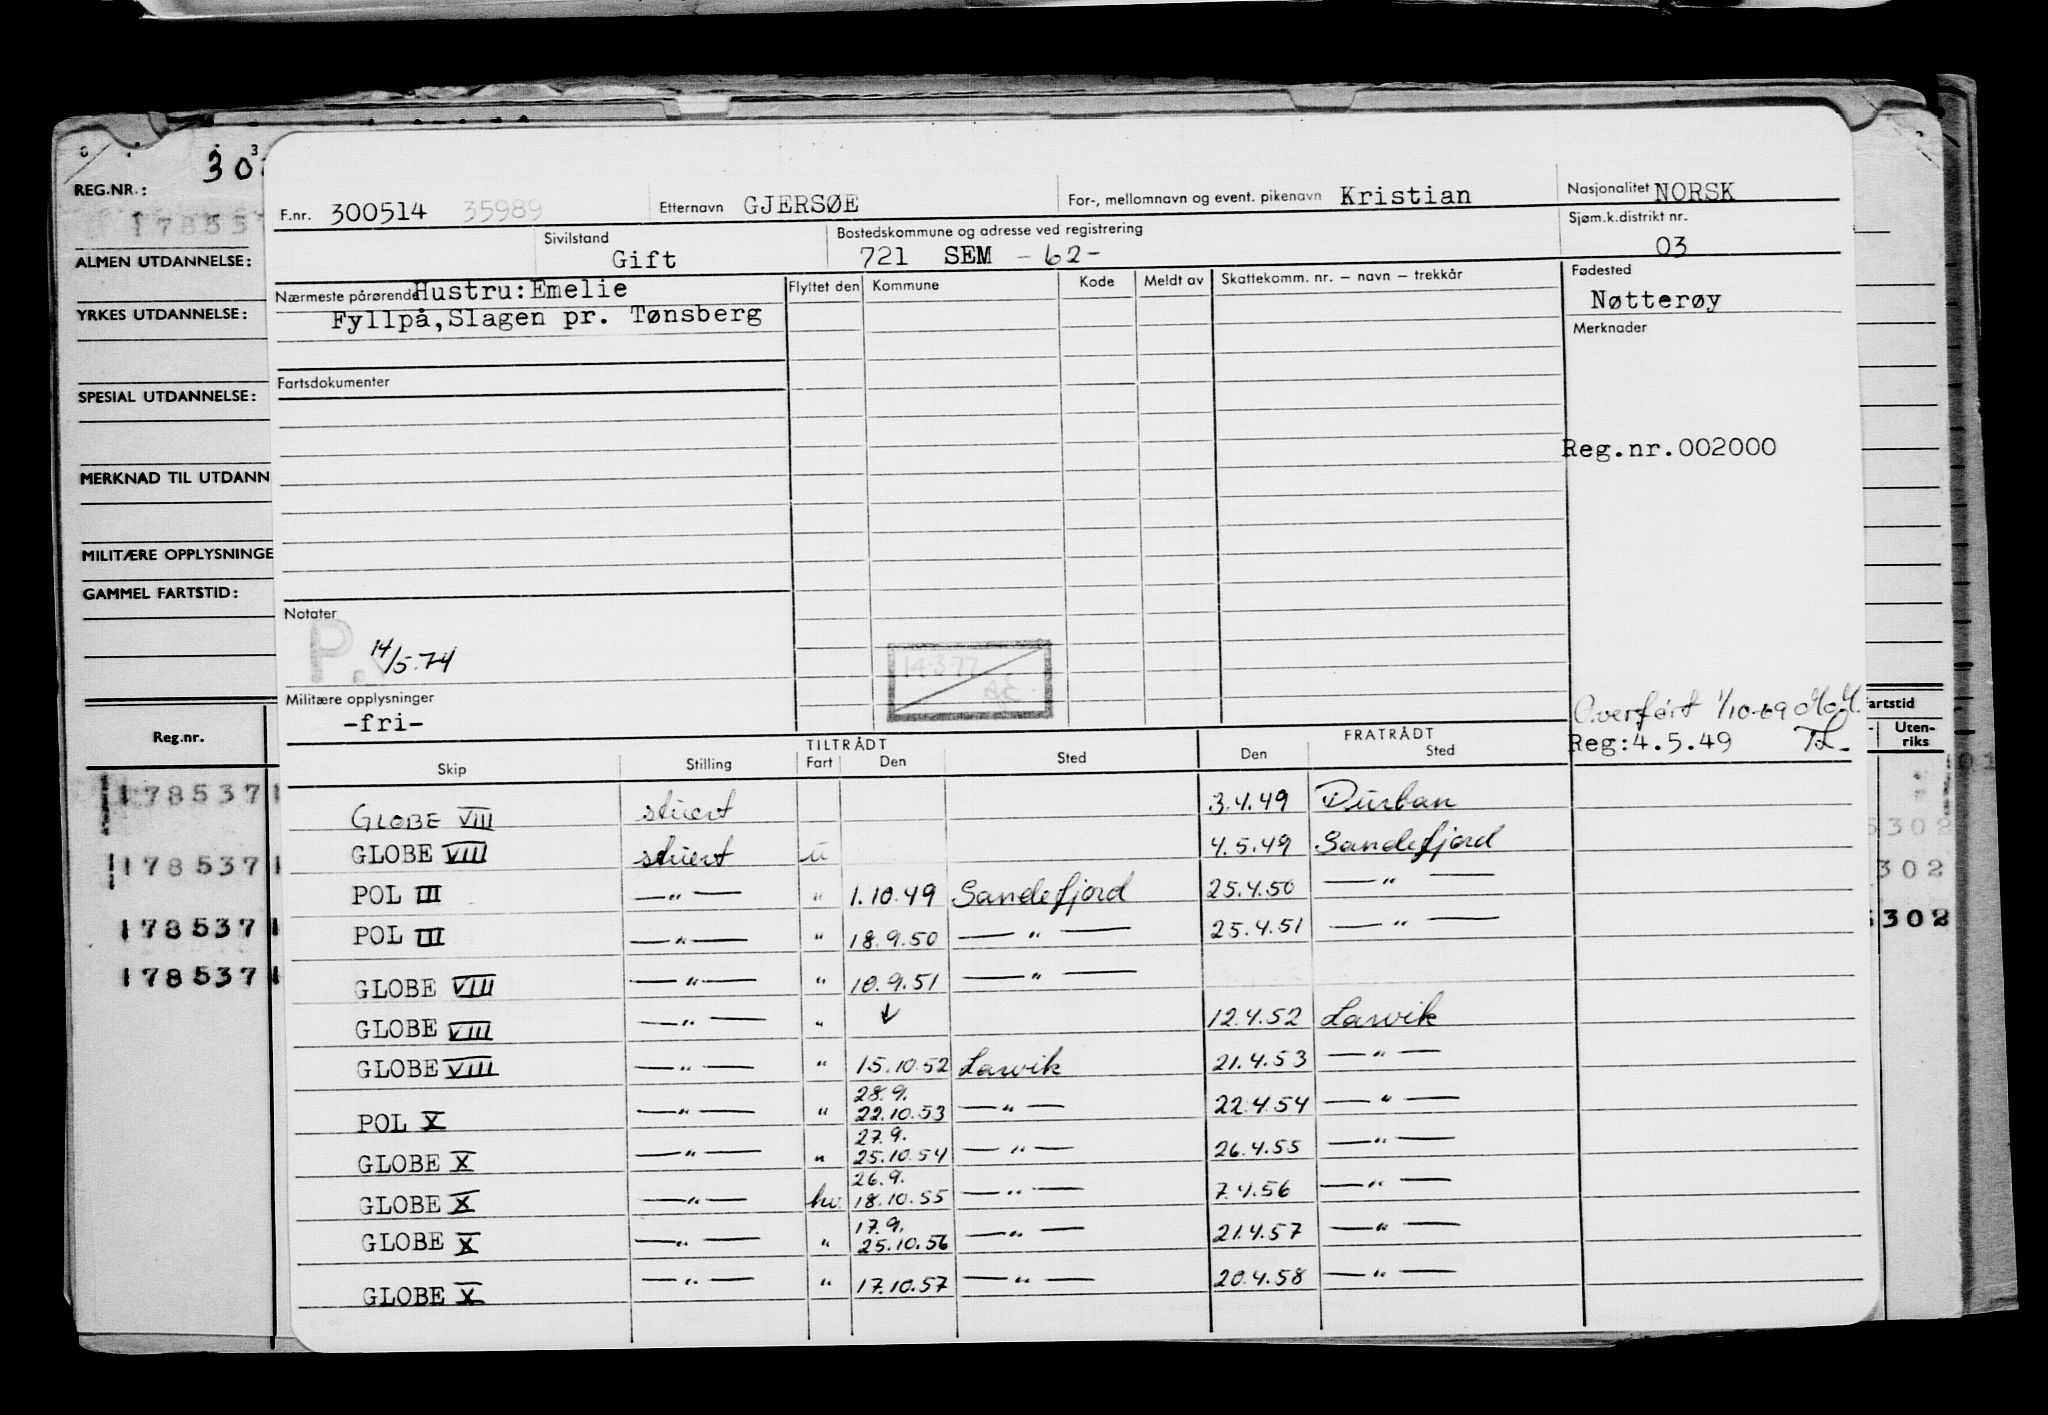 REG.NR.: 30
178537
ALMEN UTDANNELSE:
YRKES UTDANNELSE:
SPESIAL UTDANNELSE:
MERKNAD TIL UTDANN
MILITÆRE OPPLYSNINGE
GAMMEL FARTSTID:
Reg.nr.
1785371
1785371
1785371
1785371
F.nr. 300514 35989 Etternavn GJERSØE For-, mellomnavn og event. pikenavn Kristian Nasjonalitet NORSK
Sivilstand Gift Bostedskommune og adresse ved registrering 721 SEM -62- Sjøm.k.distrikt nr. 03
Nærmeste pårørende Hustru:Emelie Flyttet den Kommune Kode Meldt av Skattekomm. nr. — navn — trekkår Fødested
Fyllpå,Slagen pr. Tønsberg Nøtterøy
Merknader
Fartsdokumenter
Reg.nr.002000
Notater
P. 14/5.74 14.3.77
Militære opplysninger
-fri- Overført 1/10-69
Reg:4.5.49
TILTRÅDT FRATRÅDT
Skip Stilling Fart Den Sted Den Sted
GLOBE VIII stuert 3.4.49 Durban
GLOBE VIII stuert u 4.5.49 Sandefjord
POL III —"— " 1.10.49 Sandefjord 25.4.50 —"—
POL III —"— " 18.9.50 —"— 25.4.51 —"—
GLOBE VIII —"— " 10.9.51 —"—
GLOBE VIII —"— " ↓ 12.4.52 Larvik
GLOBE VIII —"— " 15.10.52 Larvik 21.4.53 —"—
28.9.
POL X —"— " 22.10.53 —"— 22.4.54 —"—
27.9.
GLOBE X —"— " 25.10.54 —"— 26.4.55 —"—
26.9.
GLOBE X —"— hv 18.10.55 —"— 7.4.56 —"—
17.9.
GLOBE X —"— " 25.10.56 —"— 21.4.57 —"—
GLOBE X —"— " 17.10.57 —"— 20.4.58 —"—
artstid
Uten-
riks
5302
302
5302